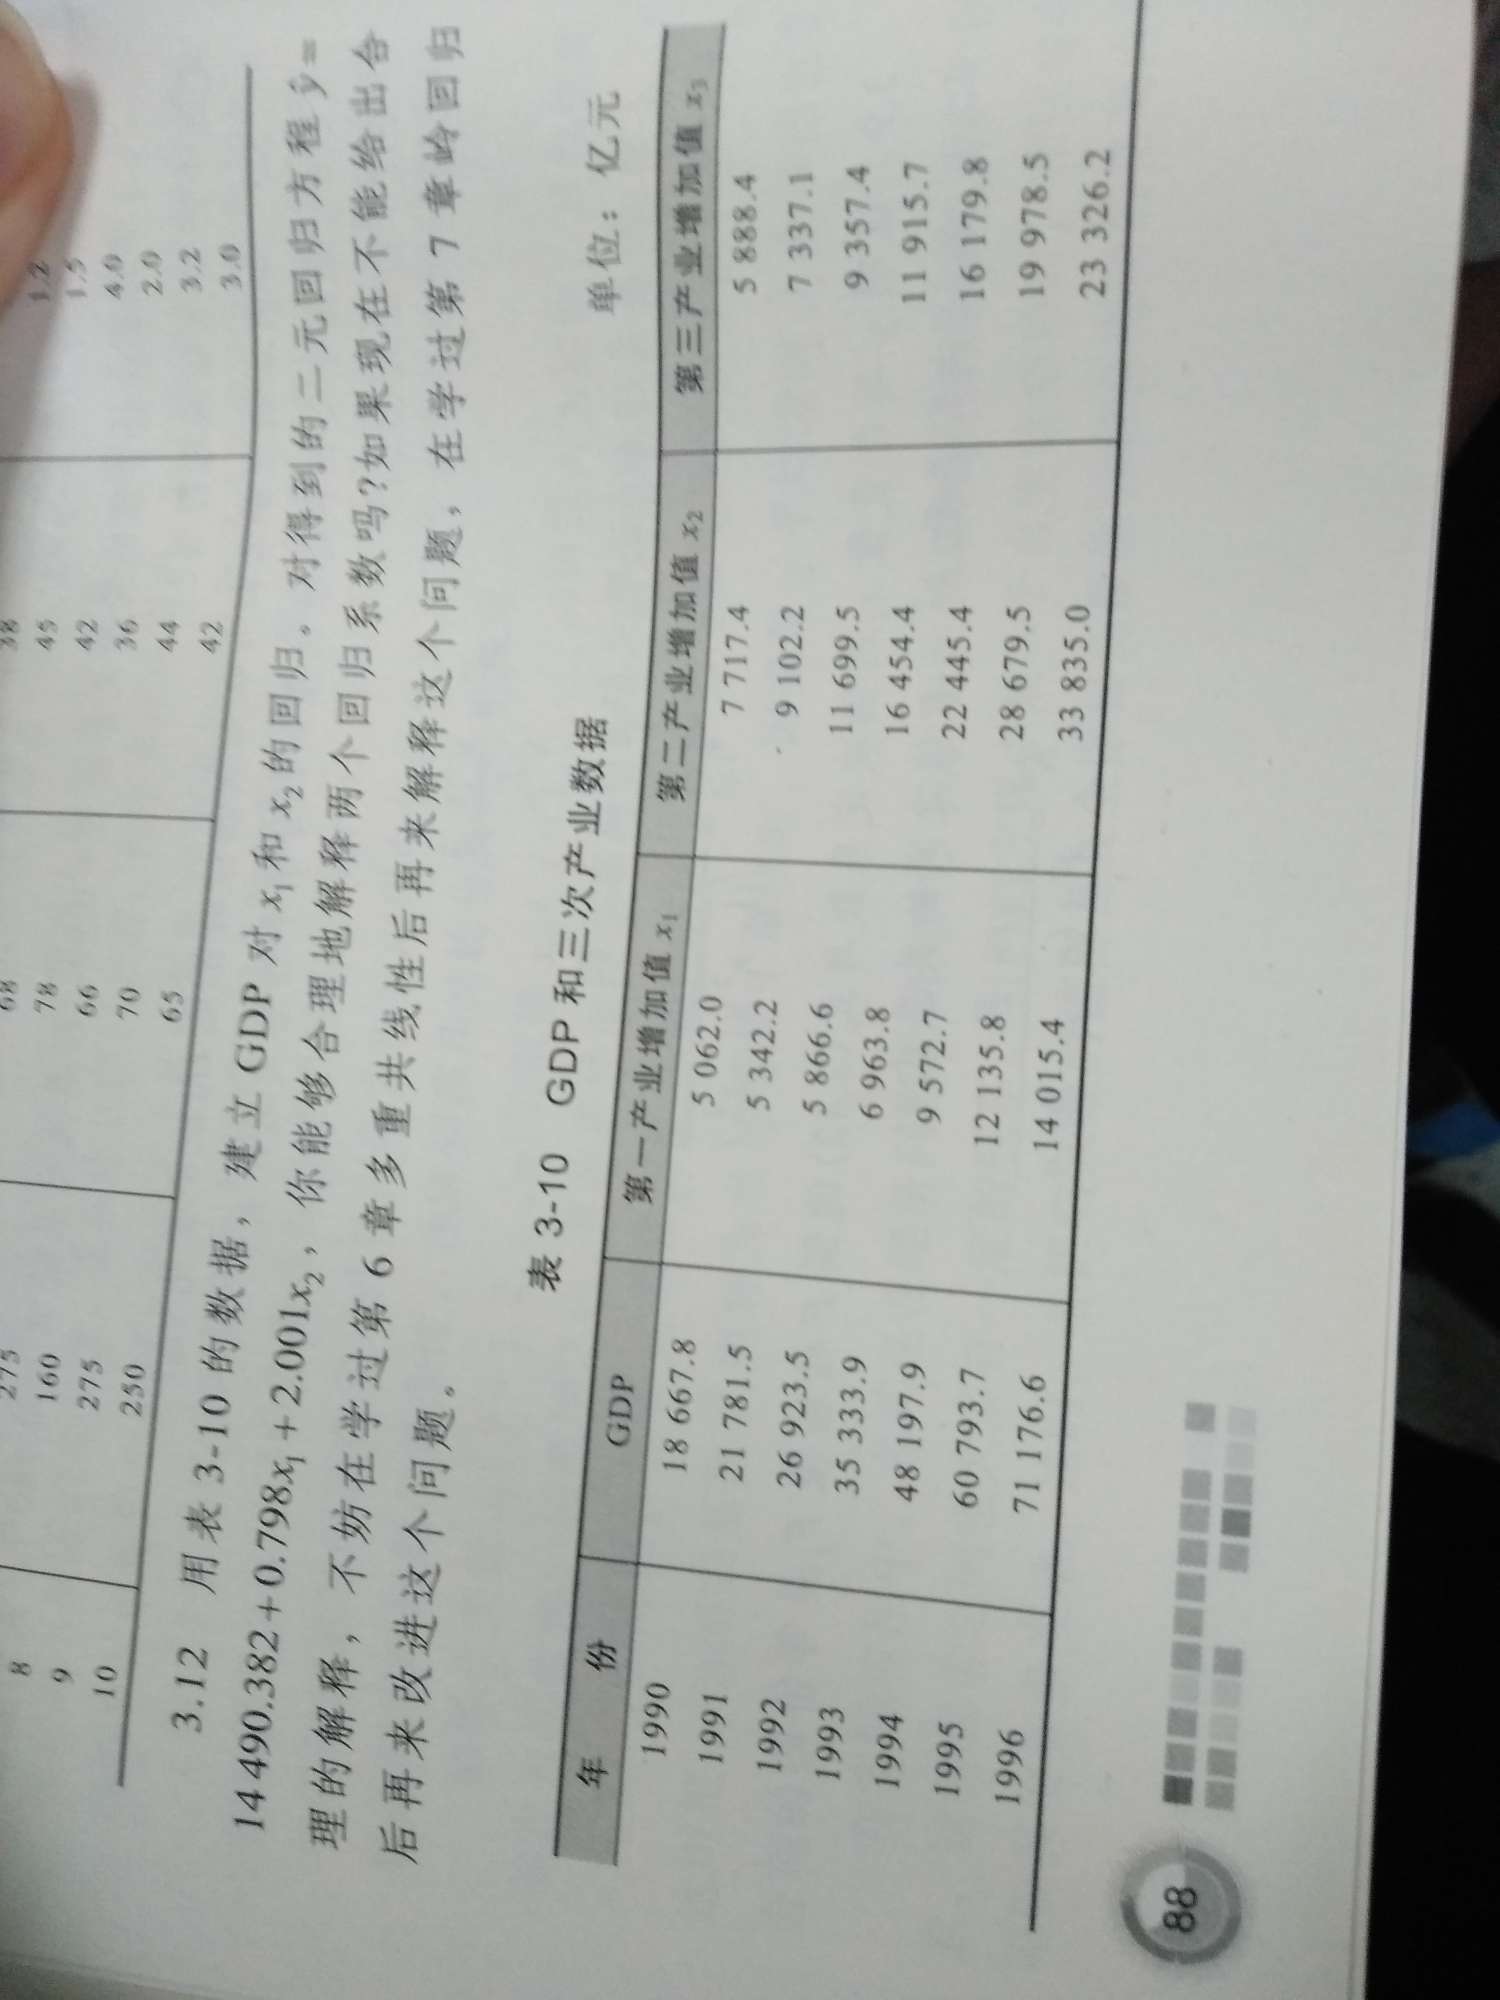 1.2
38
1.5
68
45
4.0
275
78
42
2.0
8
160
66
36
3.2
9
275
70
44
3.0
10
250
65
42
3.12 用表 3-10 的数据，建立 GDP 对 x₁和 x₂ 的回归。对得到的二元回归方程 ŷ=
14 490.382+0.798x₁+2.001x₂，你能够合理地解释两个回归系数吗?如果现在不能给出合
理的解释，不妨在学过第 6 章多重共线性后再来解释这个问题，在学过第 7 章岭回归
后再来改进这个问题。
表 3-10 GDP 和三次产业数据
单位：亿元
年 份 GDP 第一产业增加值 x₁ 第二产业增加值 x₂ 第三产业增加值 x₃
1990 18 667.8 5 062.0 7 717.4 5 888.4
1991 21 781.5 5 342.2 9 102.2 7 337.1
1992 26 923.5 5 866.6 11 699.5 9 357.4
1993 35 333.9 6 963.8 16 454.4 11 915.7
1994 48 197.9 9 572.7 22 445.4 16 179.8
1995 60 793.7 12 135.8 28 679.5 19 978.5
1996 71 176.6 14 015.4 33 835.0 23 326.2
88